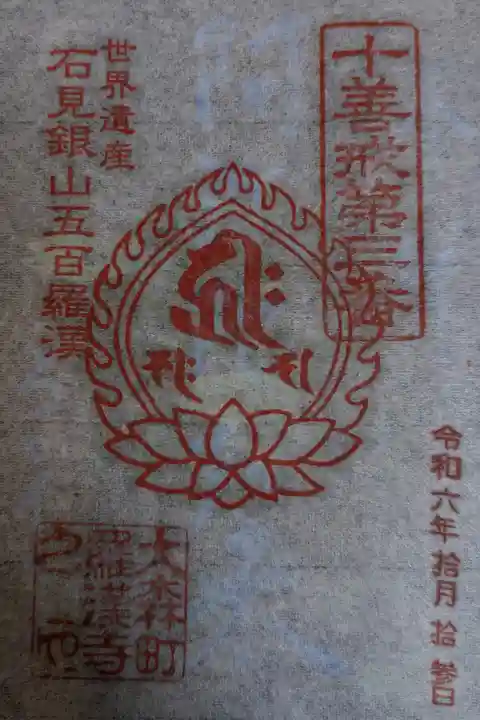 十善戒第三番
世界遺産
石見銀山五百羅漢
令和六年拾月拾参日
大森町